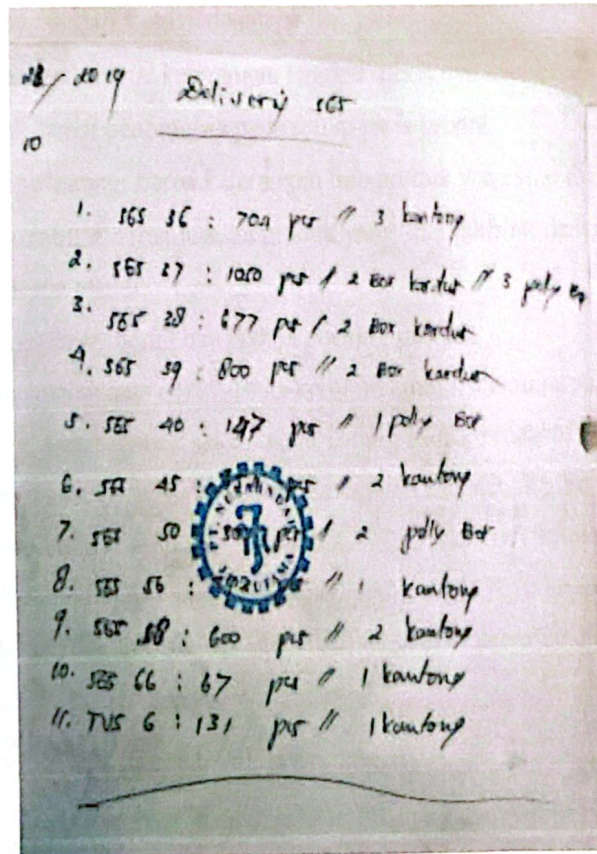 28/2019 Deliveri 565
10
1. 565 36 : 704 pcs // 3 kantong
2. 565 37 : 1050 pcs / 2 Box kardus // 3 polly Box
3. 565 38 : 677 pcs / 2 Box kardus
4. 565 39 : 800 pcs // 2 Box kardus
5. 565 40 : 147 pcs // 1 polly Box
6. 565 45 : pcs // 2 kantong
7. 565 50 : 500 pcs // 2 polly Box
8. 565 56 : pcs // 1 kantong
9. 565 58 : 600 pcs // 2 kantong
10. 565 66 : 67 pcs // 1 kantong
11. TVS 6 : 131 pcs // 1 kantong